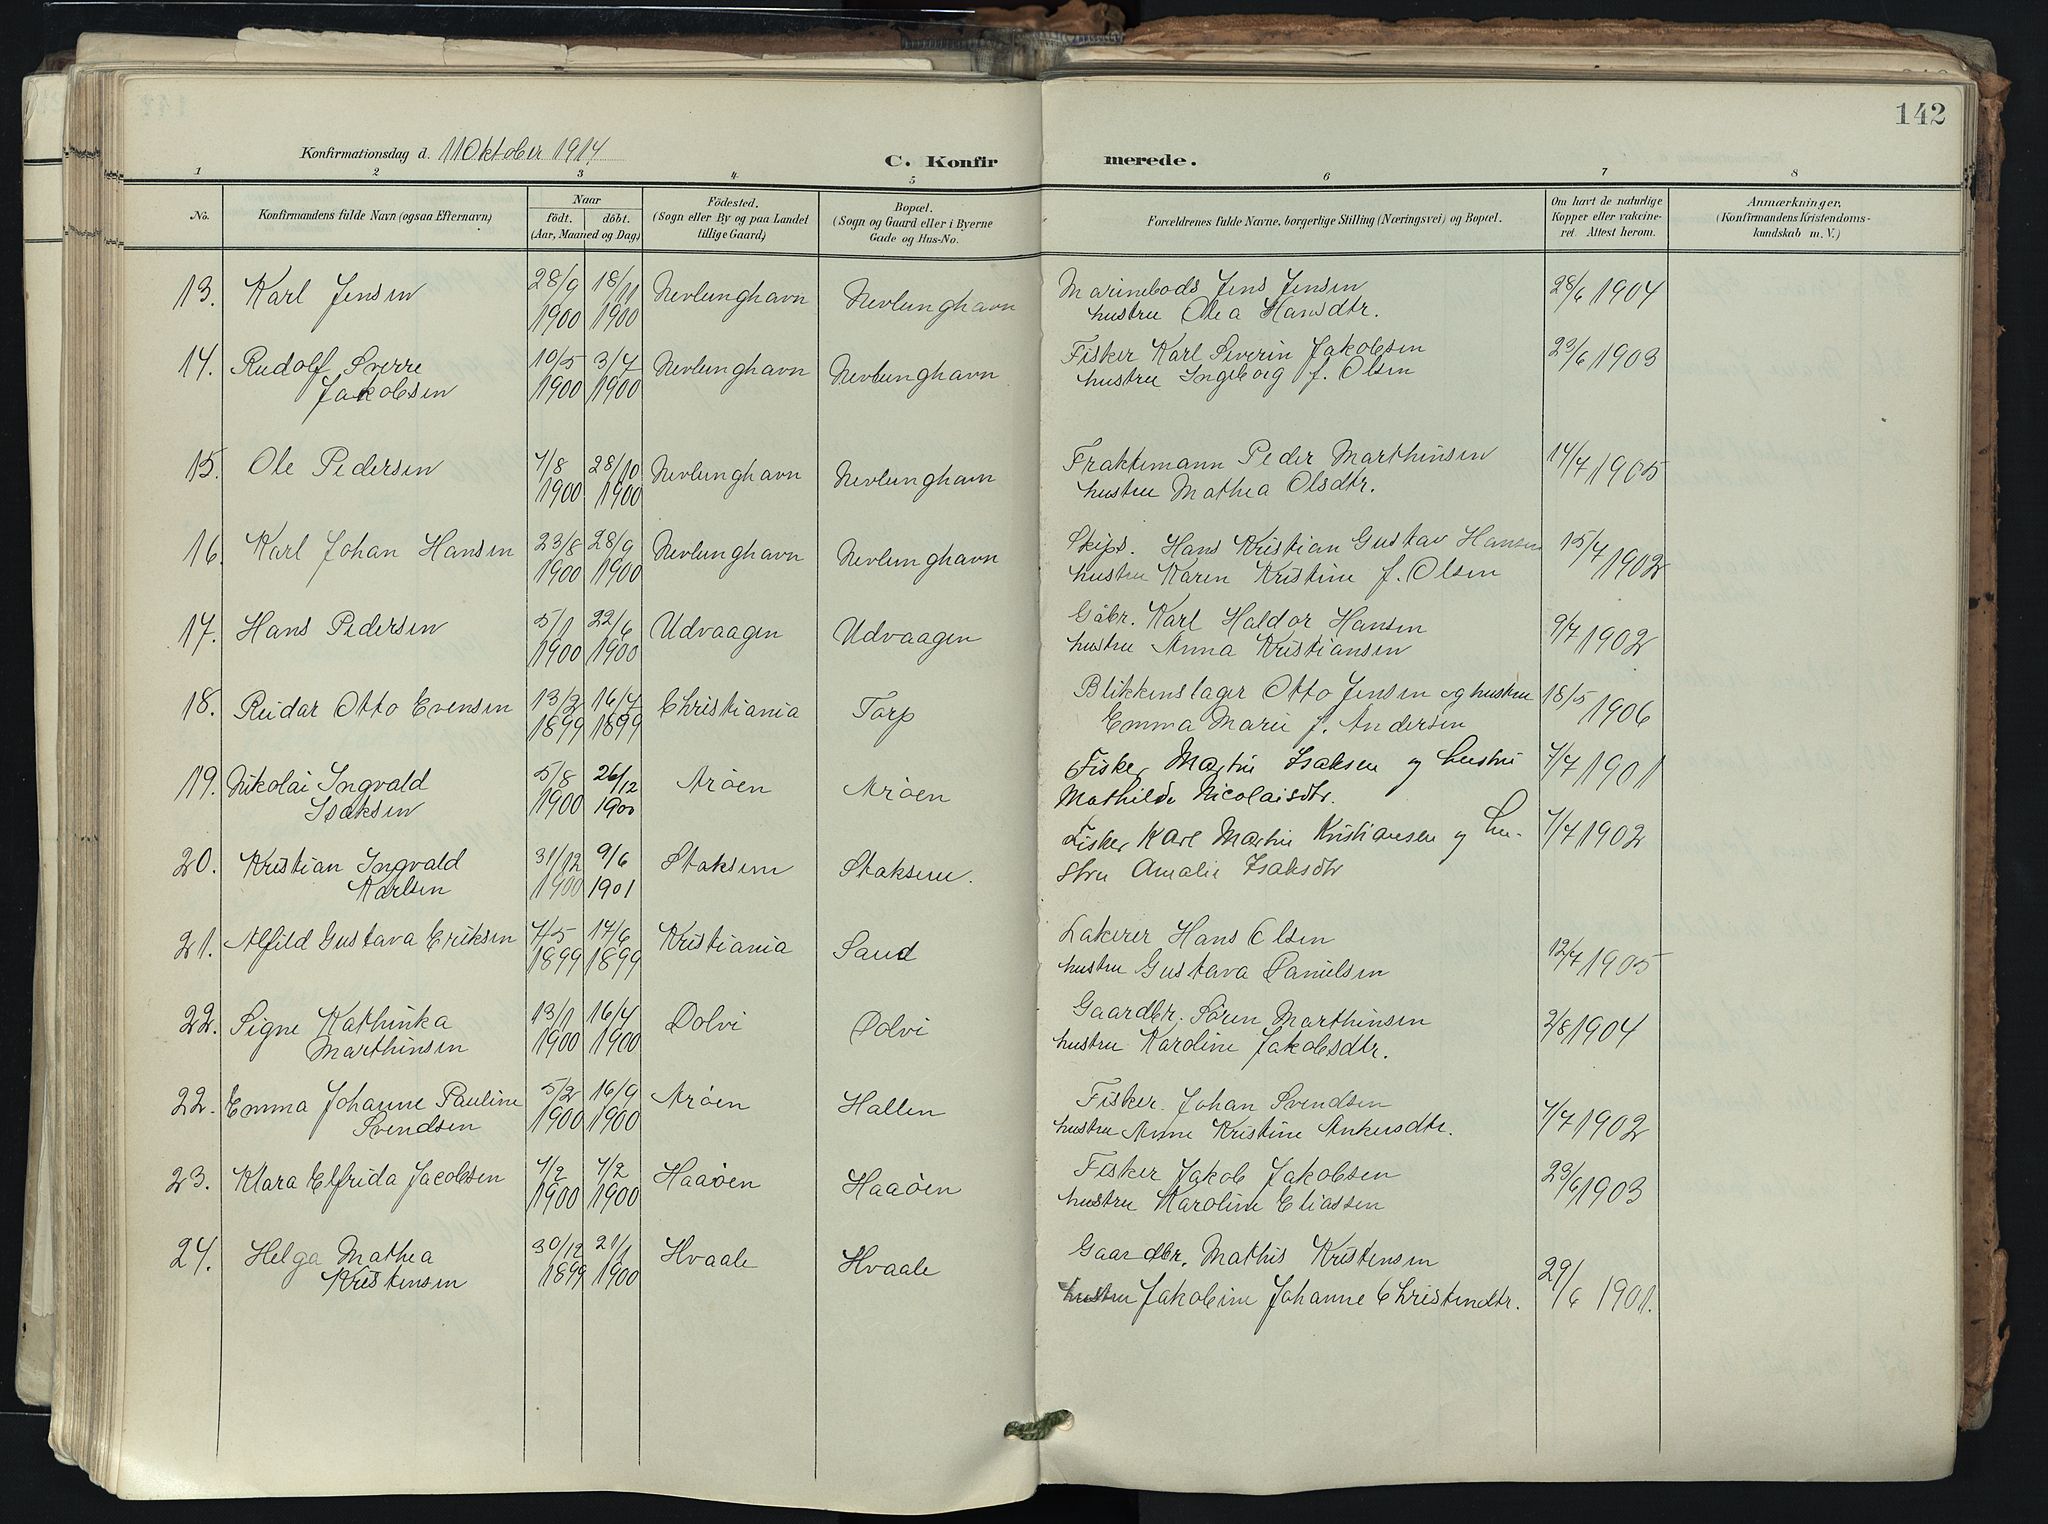 142
Konfirmationsdag d. 11 Oktober 1914
C. Konfirmerede.
1 2 3 4 5 6 7 8
No. | Konfirmandens fulde Navn (ogsaa Efternavn) | Naar født. døbt. (Aar, Maaned og Dag) | Fødested. (Sogn eller By og paa Landet tillige Gaard) | Bopæl. (Sogn og Gaard eller i Byerne Gade og Hus-No. | Forældrenes fulde Navne, borgerlige Stilling (Næringsvei) og Bopæl. | Om havt de naturlige Kopper eller vakcineret. Attest herom. | Anmærkninger. (Konfirmandens Kristendomskundskab m. V.)
13. Karl Jensen 28/9 1900 18/11 1900 Nevlunghavn Nevlunghavn Marinebods Jens Jensen 28/6 1904
hustru Olea Hansdtr.
14. Rudolf Sverre 10/5 1900 3/7 1900 Nevlunghavn Nevlunghavn Fisker Karl Severin Jakobsen 23/6 1903
Jakobsen hustru Ingeborg f. Olsen
15. Ole Pedersen 7/8 1900 28/10 1900 Nevlunghavn Nevlunghavn Fraktemann Peder Marthinsen 14/7 1905
hustru Mathea Olsdtr.
16. Karl Johan Hansen 23/8 1900 28/9 1900 Nevlunghavn Nevlunghavn Skips. Hans Kristian Gustav Hansen 15/7 1902
hustru Karen Kristine f. Olsen
17. Hans Pedersen 5/1 1900 22/6 1900 Udvaagen Udvaagen Gåbr. Karl Haldor Hansen 9/7 1902
hustru Anna Kristiansen
18. Reidar Otto Evensen 13/2 1899 16/7 1899 Christiania Torp Blikkenslager Otto Jensen og hustru 18/5 1906
Emma Marie f. Andersen
19. Nikolai Ingvald 5/8 1900 26/12 1900 Arøen Arøen Fisker Martin Isaksen og hustru 7/7 1901
Isaksen Mathilde Nicolaisdtr.
20. Kristian Ingvald 31/12 1900 9/6 1901 Stoksem Stoksem. Fisker Karl Martin Kristiansen og hu- 7/7 1902
Karlsen stru Amalie Isaksdtr
21. Alfild Gustava Eriksen 7/5 1899 17/6 1899 Kristiania Sand Lakerer Hans Olsen 12/7 1905
hustru Gustava Danielsen
22. Signe Kathinka 13/1 1900 16/4 1900 Dolvi Dolvi Gaardbr. Søren Marthinsen 2/8 1904
Marthinsen hustru Karoline Jakobsdtr.
22. Emma Johanne Pauline 5/2 1900 16/9 1900 Arøen Hallen Fisker. Johan Svendsen 7/7 1902
Svendsen hustru Anne Kristine Ankersdtr.
23. Klara Elfrida Jacobsen 1/2 1900 7/2 1900 Haaøen Haaøen Fisker Jakob Jakobsen 23/6 1903
hustru Karoline Eliassen
24. Helga Mathea 30/12 1899 21/1 1900 Hvaale Hvaale Gaardbr. Mathis Kristensen 29/6 1901.
Kristensen hustru Jakobine Johanne Christendtr.